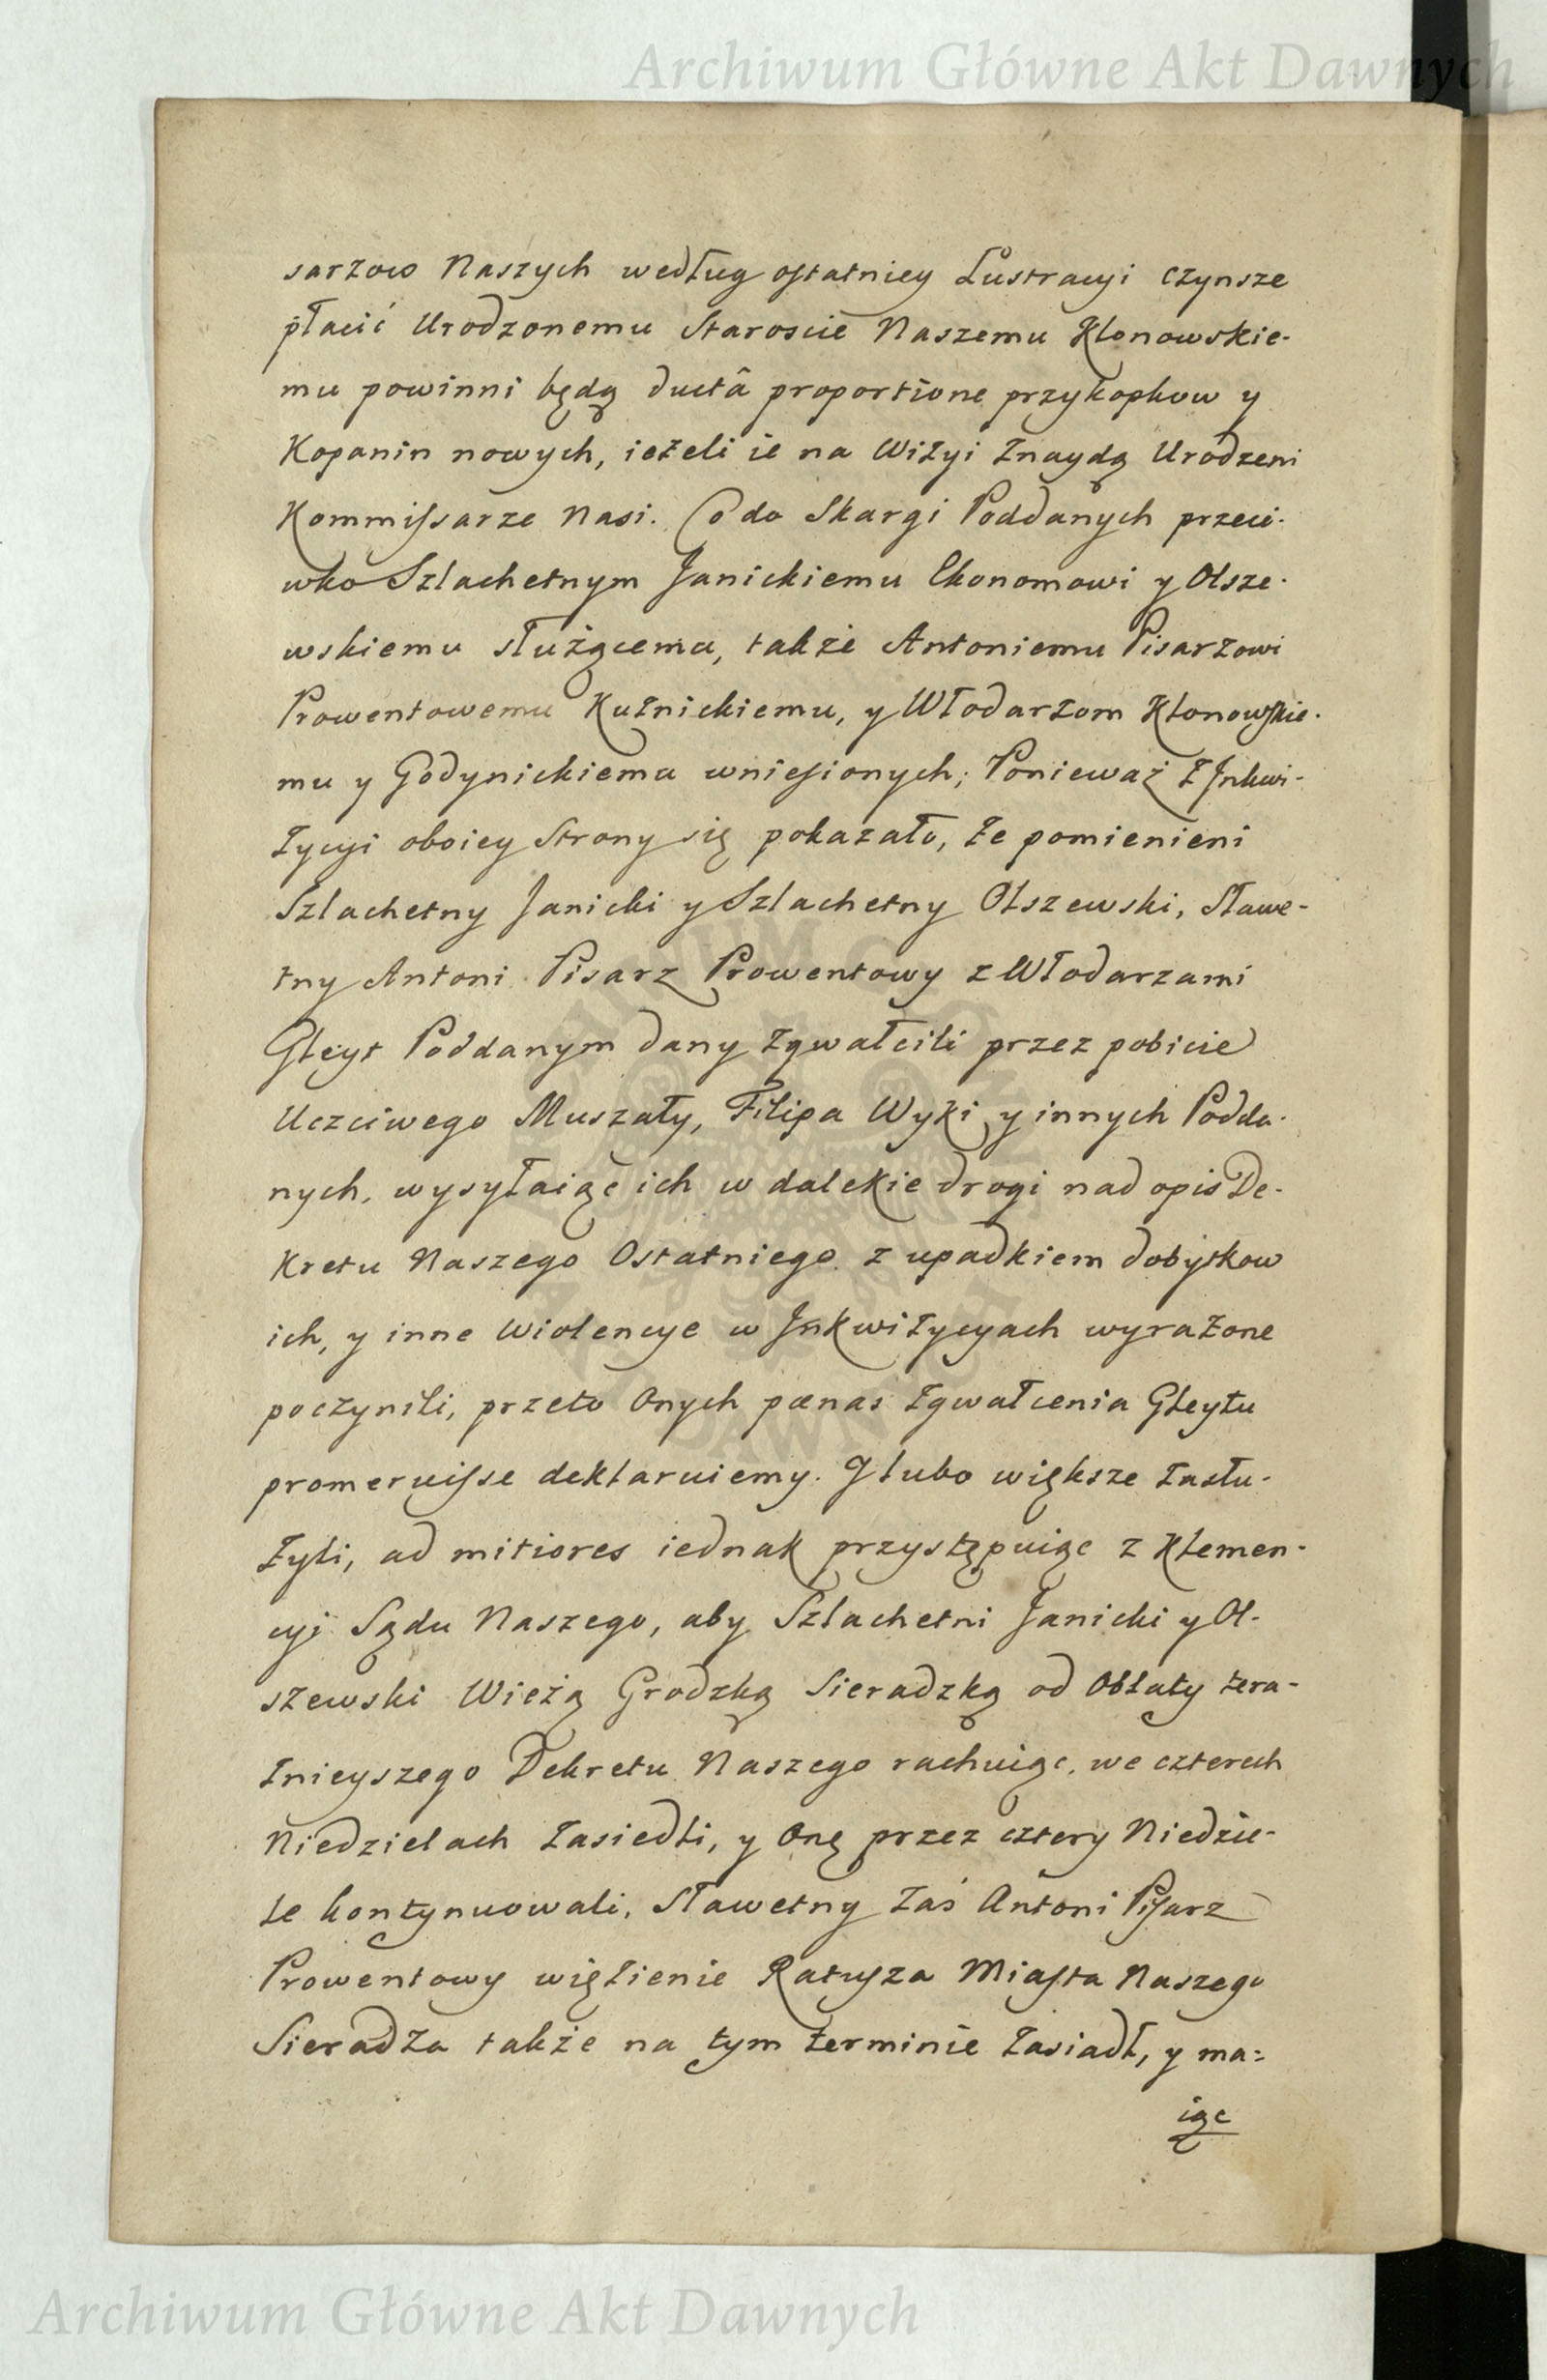 Archiwum Główne Akt Dawnych
sarzow Naszych według ostatniey Lustracyi czynsze
płacić Urodzonemu Staroscie Naszemu Klonowskie-
mu powinni będą ductâ proportione przykopkow y
Kopanin nowych, ieżeli ie na Wizyi znaydą Urodzeni
Kommissarze Nasi. Co do Skargi Poddanych przeci-
wko Szlachetnym Janickiemu Ekonomowi y Olsze-
wskiemu służącemu, także Antoniemu Pisarzowi
Prowentowemu Kuznickiemu, y Włodarzom Klonowskie-
mu y Godynickiemu wniesionych; Ponieważ z Jnkwi-
zycyi oboiey Strony się pokazało, że pomienieni
Szlachetny Janicki y Szlachetny Olszewski, Sławe-
tny Antoni Pisarz Prowentowy z Włodarzami
Gleyt Poddanym dany zgwałcili przez pobicie
Uczciwego Muszały, Filipa Wyki y innych Podda-
nych, wysyłaiąc ich w dalekie drogi nad opis De-
kretu Naszego Ostatniego z upadkiem dobytkow
ich, y inne Wiolencye w Jnkwizycyach wyrażone
poczynili, przeto Onych pœnas zgwałcenia Gleytu
promeruisse deklaruiemy. J lubo większe zasłu-
żyli, ad mitiores iednak przystępuiąc z Klemen-
cyi Sądu Naszego, aby Szlachetni Janicki y Ol-
szewski Wieżą Grodzką Sieradzką od Oblaty tera-
znieyszego Dekretu Naszego rachuiąc, we czterech
Niedzielach zasiedli, y Onę przez cztery Niedzie-
le kontynuowali, Sławetny zaś Antoni Pisarz
Prowentowy więzienie Ratusza Miasta Naszego
Sieradza także na tym terminie zasiadł, y ma=
iąc
Archiwum Główne Akt Dawnych